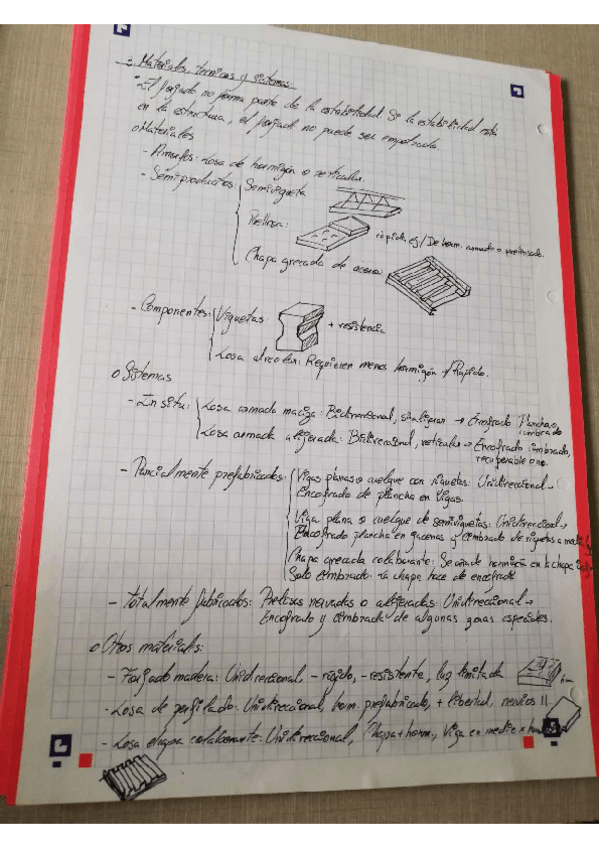 : Materiales, tecnicas y sistemas
· El forjado no forma parte de la estabilidad. Si la estabilidad está
en la estructura, el forjado no puede ser empotrado.
o Materiales
- Amorfos: Losa de hormigón o reticular.
- Semiproductos: Semivigueta
Prelosa: rápida, ej/ De horm. armado o pretensado.
Chapa grecada de acero:
- Componentes: Viguetas + resistencia
Losa alveolar: Requieren menos hormigón y Rapido.
o Sistemas
- In situ: Losa armada maciza: Bidireccional, sin aligerar → Encofrado Plancha o
cimbrado
Losa armada aligerada: Bidireccional, reticular → Encofrado cimbrado,
recuperable o no.
- Parcialmente prefabricados: Vigas planas o cuelgue con viguetas: Unidireccional →
Encofrado de plancha en vigas.
Viga plana o cuelgue de semiviguetas: Unidireccional →
Encofrado plancha en y cimbrado de viguetas a
Chapa grecada colaborante: Se añade hormigón en la chapa
Solo cimbrado: la chapa hace de encofrado
- Totalmente fabricados: Prelosas nervadas o aligeradas: Unidireccional →
Encofrado y cimbrado de algunas especiales.
o Otros materiales:
- Forjado madera: Unidireccional, - rígido, - resistente, luz limitada
- Losa de perfilado: Unidireccional, horm. prefabricado, + libertad, nervios II
- Losa chapa colaborante: Unidireccional, Chapa + horm., Viga en medio x